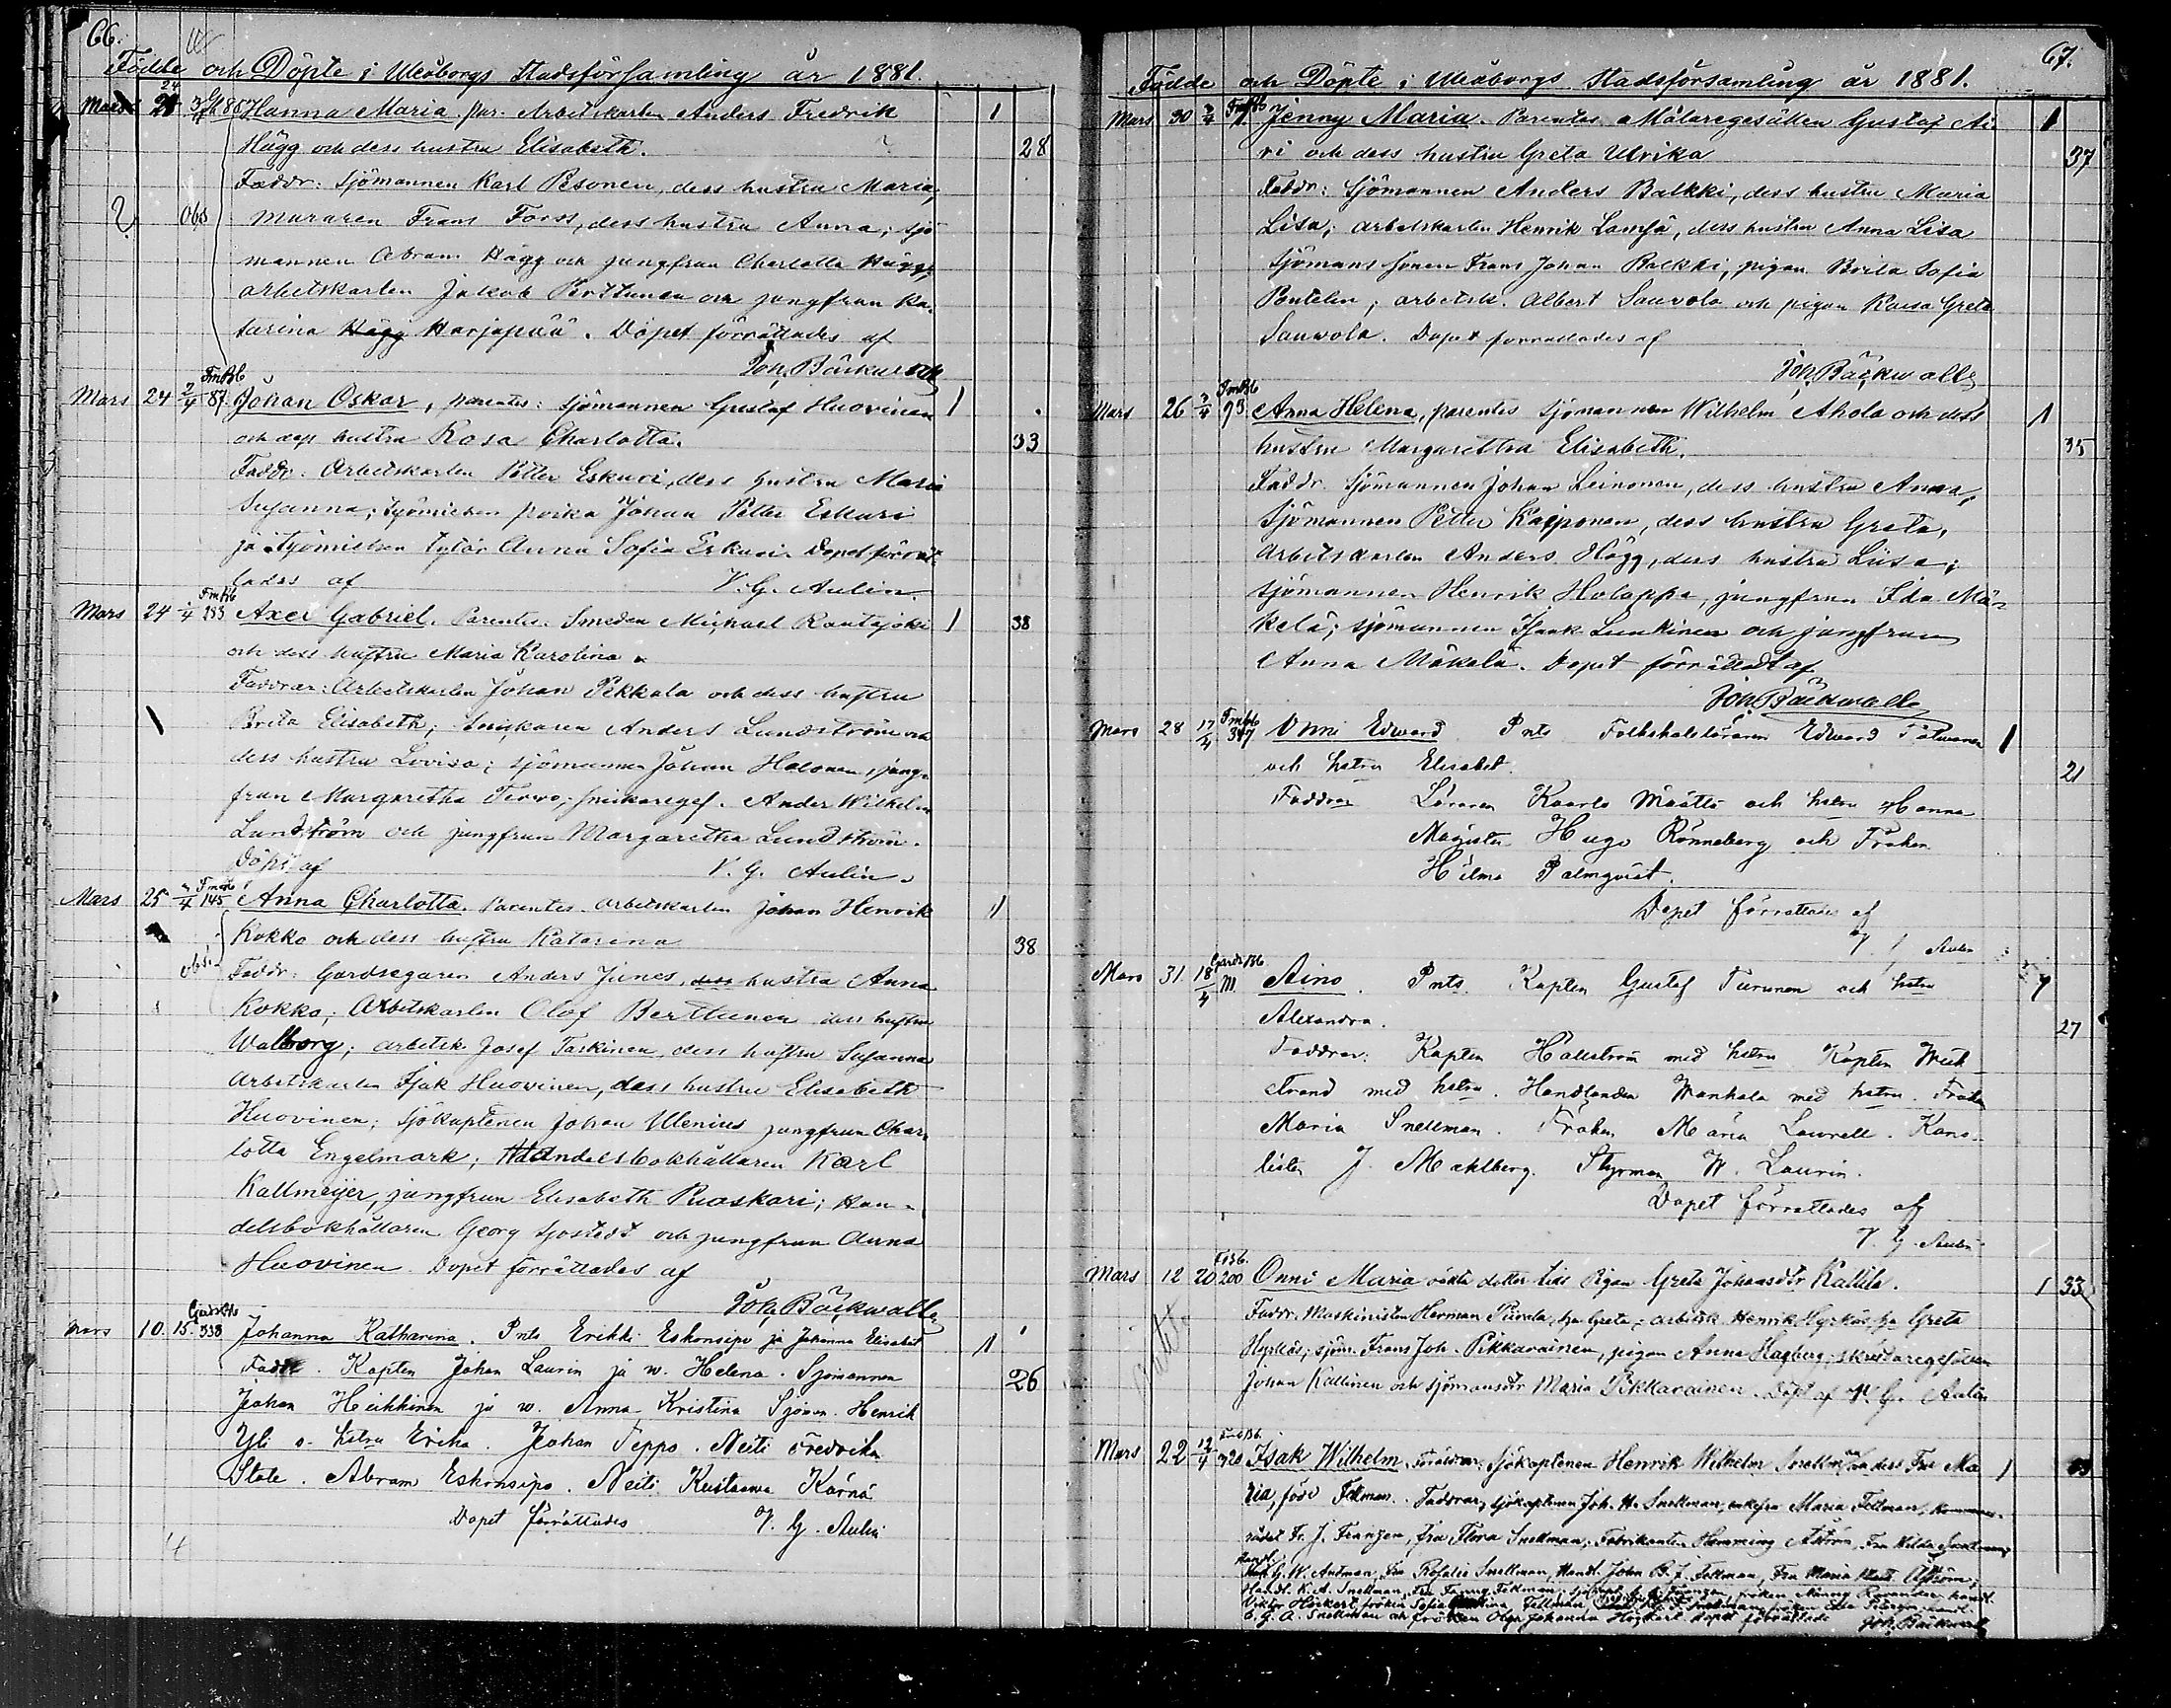 66.
Födde och Döpte i Uleåborgs Stadsförsamling år 1881.
Mars 24 Hanna Maria. par. Arbetskarlen Anders Fredrik 1
Hägg och dess hustru Elisabeth. 28
Faddr: Sjömannen Karl Pesonen, dess hustru Maria,
? Obs muraren Frans Forss, dess hustru Anna; sjö
mannen Abram Hägg och jungfrun Charlotta Hägg;
arbetskarlen Jakob Perttunen och jungfrun Ka-
tarina Hägg Harjapää. Dopet förrättades af
Joh. Bäckwall
Mars 24 2/4 FmBb 87. Johan Oskar, parentes: sjömannen Gustaf Huovinen 1
och dess hustru Rosa Charlotta. 33
Faddr. Arbetskarlen Petter Eskuri, dess hustru Maria
Susanna; työmiehen poika Johan Petter Eskuri
ja työmiehen tytär Anna Sofia Eskuri. Dopet förrät-
tades af V. G. Aulin
Mars 24 FmBb 183 Axel Gabriel. Parentes. Smeden Michael Rantajoki 1 38
och dess hustru Maria Karolina.
Faddrar: Arbetskarlen Johan Pekkala och dess hustru
Brita Elisabeth; Anders Lundström och
dess hustru Lovisa; sjömannen Johan Halonen, jung-
frun Margaretha Tervo; snickaregef. Anders Wilhelm
Lundström och jungfrun Margaretha Lundström.
Döpt af V. G. Aulin.
Mars 25 FmBb 145 Anna Charlotta. Parentes. Arbetskarlen Johan Henrik 1
Kokko och dess hustru Katarina 38
obs. Faddr: Gårdsegaren Anders Junes, dess hustru Anna
Kokko; Arbetskarlen Olof Berttunen dess hustru
Walborg; arbetsk. Josef Taskinen, dess hustru Susanna
Arbetskarlen Isak Huovinen, dess hustru Elisabeth
Huovinen; Sjökaptenen Johan Ulenius jungfrun Char-
lotta Engelmark; Handelsbokhållaren Karl
Kallmeijer, jungfrun Elisabeth Ruaskari; Han-
delsbokhållaren Georg Sjöstedt och jungfrun Anna
Huovinen. Dopet förrättades af
Joh. Bäckwall
Mars 10. 15. 338 Johanna Katharina. Pnts Erikki Eskonsipo ja Johanna Elisabet 1
Kapten Johan Laurin ja w. Helena. Sjömannen 26
Johan Heikkinen ja w. Anna Kristina Sjöman. Henrik
Yli o. hstru Erika. Johan Seppo. Neiti Fredrika
Abram Eskonsipo. Neiti Kustaawa Kärnä
Dopet förrättades V. G. Aulin
67.
Födde och Döpte i Uleåborgs Stadsförsamling år 1881.
Mars 30 3/4 FmBb Jenny Maria. Parentes. Målaregesällen Gustaf Ai- 1
ri och dess hustru Greta Ulrika 37
Faddr: Sjömannen Anders Balkki, dess hustru Maria
Lisa; arbetskarlen Henrik Lamsä, dess hustru Anna Lisa
Sjömans sonen Frans Johan Balkki, pigan Brita Sofia
Pantelin; arbetsk. Albert Sauvola och pigan Kaisa Greta
Sauwola. Dopet förrättades af
Joh. Bäckwall
Mars 26 3/4 FmBb 93. Anna Helena, parentes sjömannen Wilhelm Ahola och dess 1
hustru Margarettha Elisabeth. 35
Faddr. Sjömannen Johan Leinonen, dess hustru Anna,
Sjömannen Petter Kaipponen, dess hustru Greta,
arbetskarlen Anders Hägg, dess hustru Liisa;
sjömannen Henrik Holappa, jungfrun Ida Mä-
kelä; sjömannen Isak Lunkinen och jungfrun
Anna Mäkelä. Dopet förrättadt af
Joh. Bäckwall
Mars 28 17/4 FmBb 347 Onni Edward Pnts Folkskolsläraren Edward 1
och hstru Elisabet. 21
Faddrar Läraren Kaarlo Määttä och hstru Hanna
Magister Hugo Rönneberg och Fröken
Hilma Palmqvist.
Dopet förrättades af
V. G. Aulin
Mars 31. 18/4 Aino. Pnts. Kapten Gustaf Turunen och hstru 1
Alexandra. 27
Faddrar: Kapten Hällström med hstru. Kapten West-
strand med hstru. Handlanden Wanhala med hstru. Fröken
Maria Snellman. Fröken Maria Laurell. Kans-
listen J. Mahlberg. Styrman W. Laurin.
Dopet förrättades af
V. G. Aulin
Mars 12 20 200 Onni Maria oäkta dotter till Pigan Greta Johansdtr Kallila. 1 33
Faddr. Maskinisten Herman hu Greta; arbetsk. Henrik Hyrkäs hu Greta
Hyrkäs; sjöm. Frans Joh. Pikkarainen, pigan Anna Hagberg; skräddaregesällen
Johan Kallinen och sjömansdtr Maria Pikkarainen. Döpt af V. G. Aulin
Mars 22 12/4 Isak Wilhelm. Föräldrar: Sjökaptenen Henrik Wilhelm Snellman och dess Fru Ma- 1
ria, född Fellman. Faddrar, Sjökaptenen Joh. H. Snellman, enkefru Maria Fellman,
rådet Fr. J. Franzen, Fru Flora Snellman; Fabrikanten Hemming Åström, Fru Hilda
G. W. Andman, Fru Rosalie Snellman, Handl. John B. J. Fellman, Fru Maria Åström;
Handl. K. A. Snellman, Fru Fanny Fellman;
Viktor Höckert, fröken Sofia Fellman
E. G. A. Snellman och fröken Olga Johanna Högman. Dopet förrättade Joh. Bäckwall